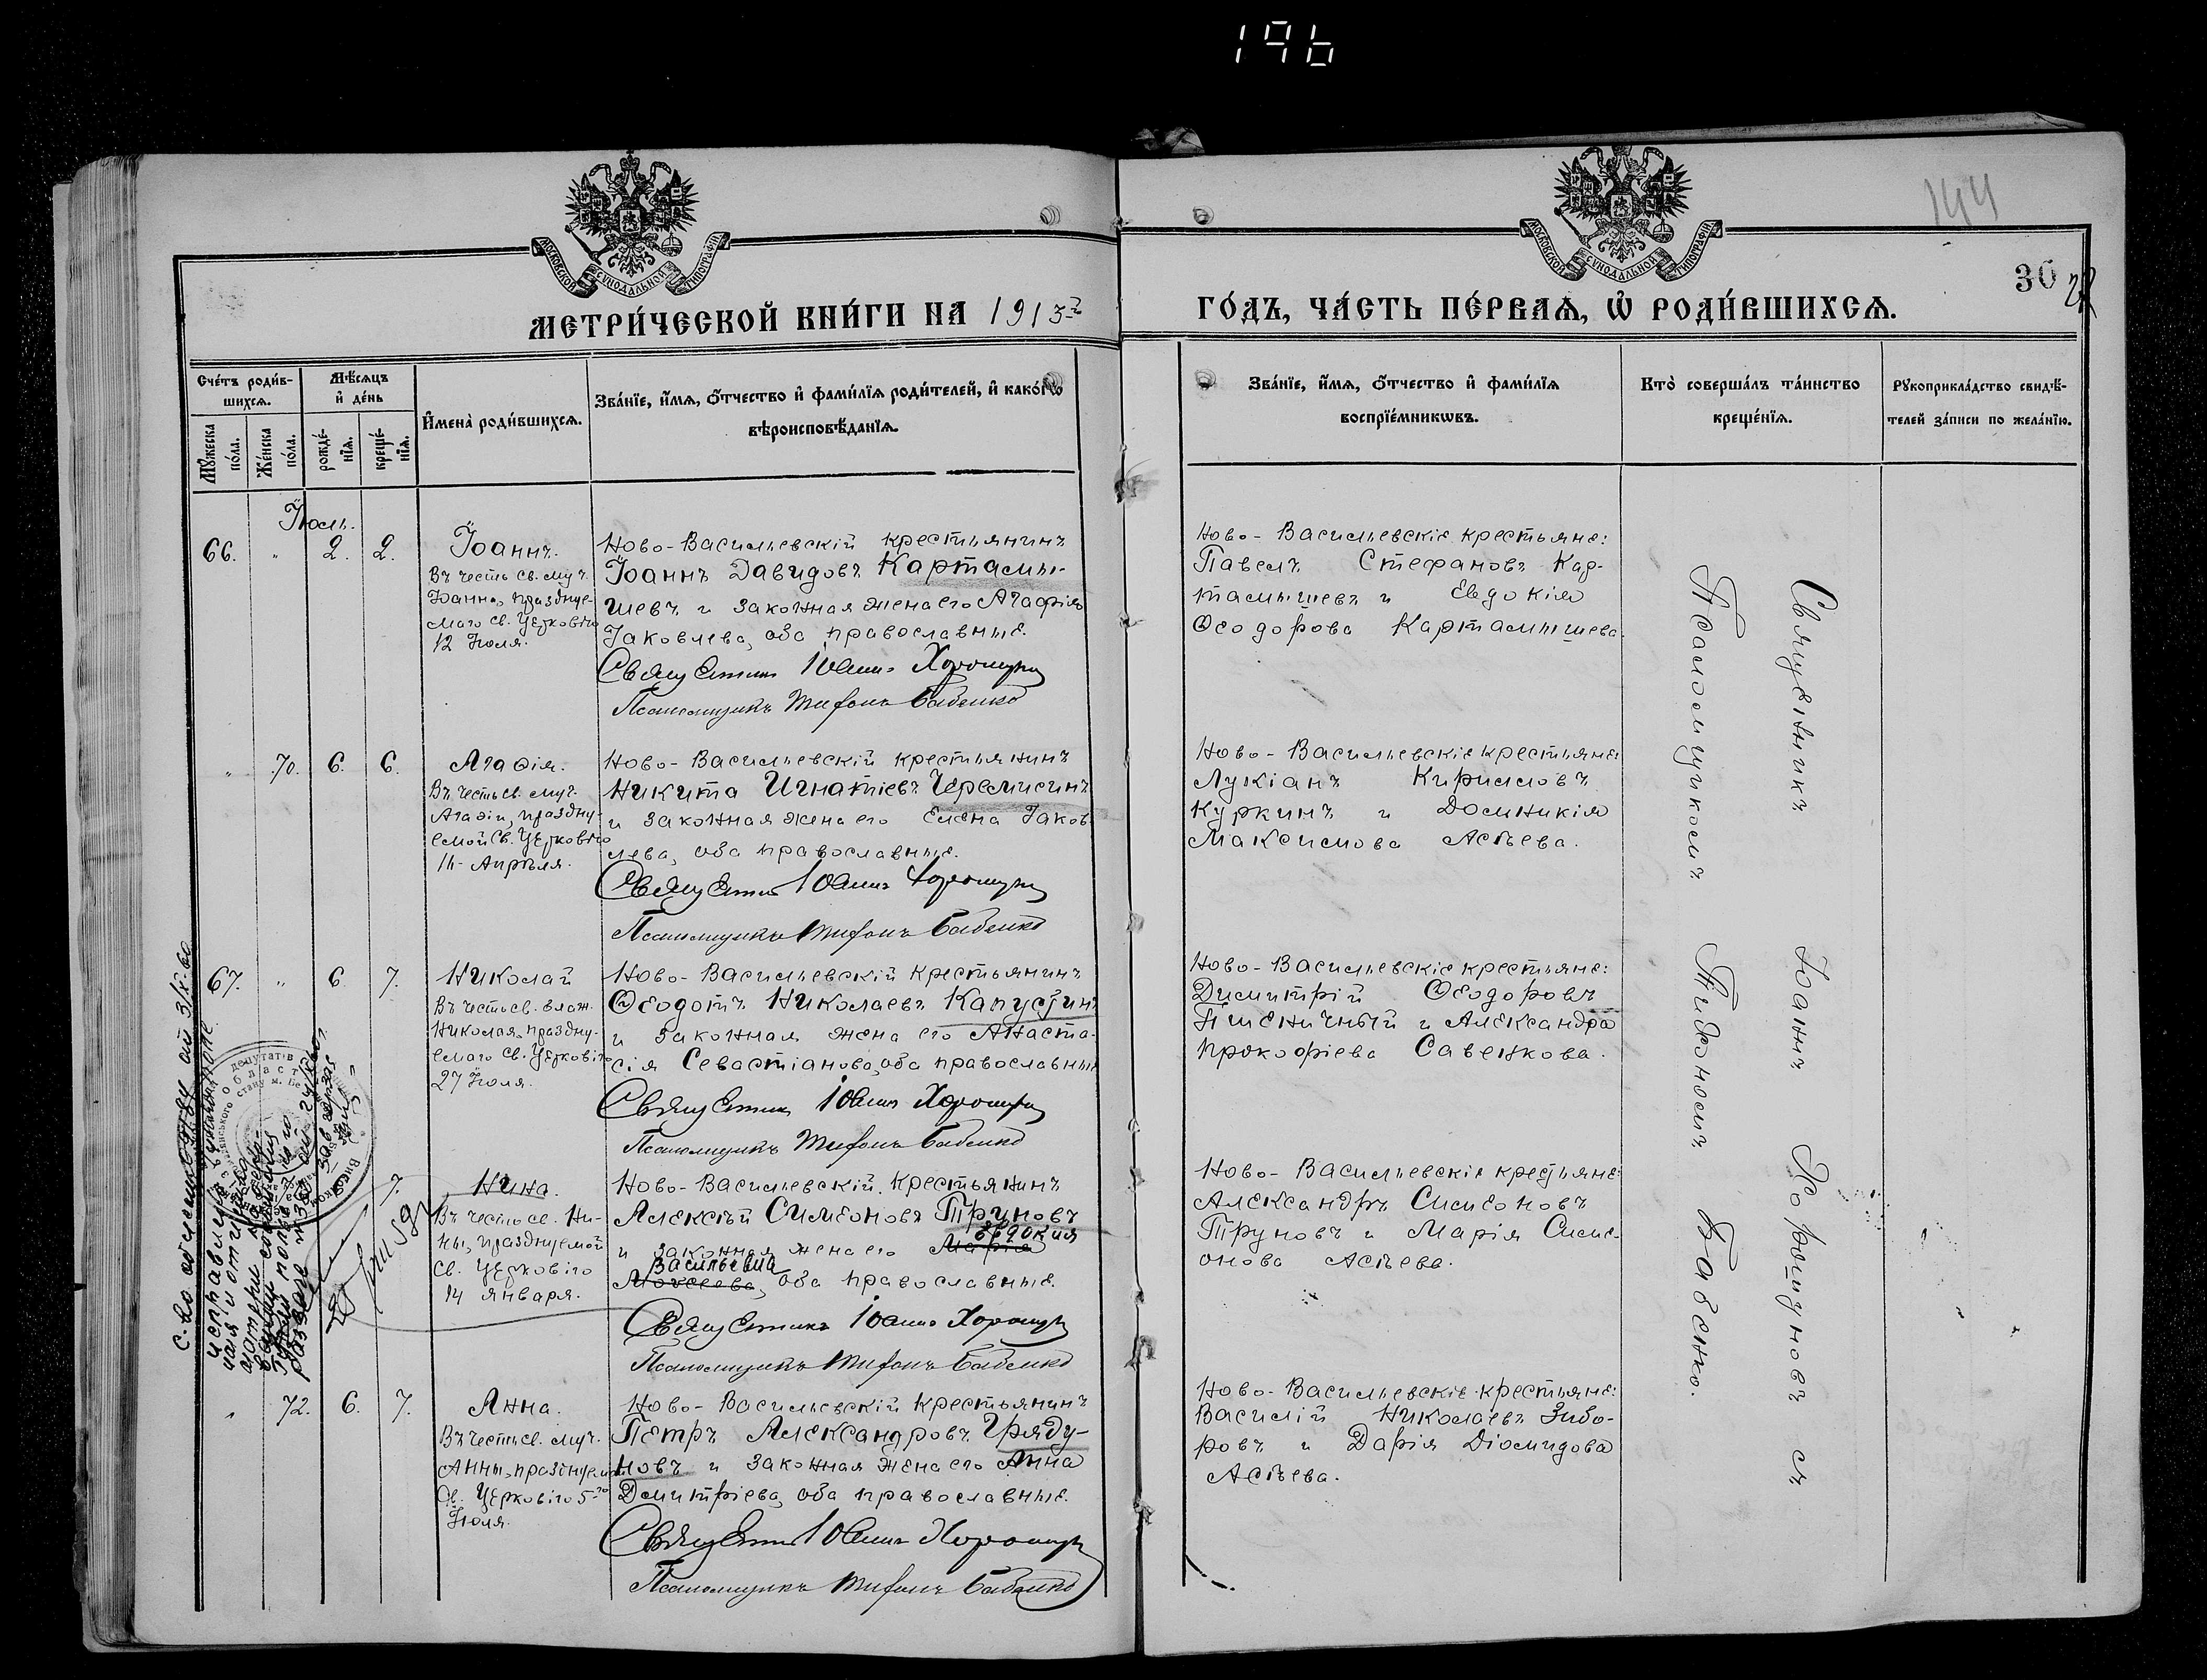 196
144
30
МОСКОВСКОЙ СѴНОДАЛЬНОЙ ТИПОГРАФІИ
МОСКОВСКОЙ СѴНОДАЛЬНОЙ ТИПОГРАФІИ
МЕТРИ́ЧЕСКОЙ КНИ́ГИ НА 1913й
ГО́ДЪ, ЧА́СТЬ ПЕ́РВАѦ, Ѡ҆ РОДИ́ВШИХСѦ.
Сче́тъ роди́в-
шихсѧ.
Мѣ́сѧцъ
и҆ де́нь
Мꙋ́жеска
по́ла.
Же́нска
по́ла.
рожде́-
нїѧ.
креще́-
нїѧ.
И҆мена̀ роди́вшихсѧ.
Зва́нїе, и҆́мѧ, ѻ҆́тчество и҆ фами́лїѧ роди́телей, и҆ како́гѡ
вѣроисповѣ́данїѧ.
Зва́нїе, и҆́мѧ, ѻ҆́тчество и҆ фами́лїѧ
воспрїе́мникѡвъ.
Кто̀ соверша́лъ та́инство
креще́нїѧ.
Рꙋкоприкла́дство свидѣ́-
телей за́писи по жела́нїю.
Іюль.
66. " 2. 2.
Іоаннъ.
Въ честь св. муч.
Іоанна, празднуе-
маго св. Церковію
12 Іюля.
Ново-Васильевскій крестьянинъ
Іоаннъ Давидовъ Картамы-
шевъ и законная жена его Агафія
Іаковлева, оба православные.
Священникъ Іоаннъ Хорошунъ
Псаломщикъ Тифонъ Бабенко
Ново-Васильевскіе крестьяне:
Павелъ Стефановъ Кар-
тамышевъ и Евдокія
Ѳеодорова Картамышева.
" 70. 6. 6.
Агаѳія.
Въ честь св. муч.
Агаѳіи, праздну-
емой св. Церковію
16 Апрѣля.
Ново-Васильевскій крестьянинъ
Никита Игнатіевъ Черемисинъ
и законная жена его Елена Іаков-
лева, оба православные.
Священникъ Іоаннъ Хорошунъ
Псаломщикъ Тифонъ Бабенко
Ново-Васильевскіе крестьяне:
Лукіанъ Кирилловъ
Куркинъ и Домникія
Максимова Асѣева.
67. " 6. 7.
Николай
Въ честь св. блаж.
Николая, праздну-
емаго св. Церковію
27 Іюля.
Ново-Васильевскій крестьянинъ
Ѳеодотъ Николаевъ Капустинъ
и законная жена его Анаста-
сія Севастіанова, оба православные
Священникъ Іоаннъ Хорошунъ
Псаломщикъ Тифонъ Бабенко
Ново-Васильевскіе крестьяне:
Димитрій Ѳеодоровъ
Пшеничный и Александра
Прокофіева Савенкова.
7.
Нина.
Въ честь св. Ни-
ны, празднуемой
св. Церковію
14 января.
Ново-Васильевскій крестьянинъ
Алексѣй Симеоновъ Труновъ
Евдокия
и законная жена его Марія
Васильевна
Моисеева, оба православные.
Священникъ Іоаннъ Хорошунъ
Псаломщикъ Тифонъ Бабенко
Ново-Васильевскіе крестьяне:
Александръ Симеоновъ
Труновъ и Марія Симе-
онова Асѣева.
" 72. 6. 7.
Анна.
Въ честь св. муч.
Анны, празднуемой
Св. Церковію 5го
Іюля.
Ново-Васильевскій крестьянинъ
Петръ Александровъ Гряду-
новъ и законная жена его Анна
Димитріева, оба православные.
Священникъ Іоаннъ Хорошунъ
Псаломщикъ Тифонъ Бабенко
Ново-Васильевскіе крестьяне:
Василій Николаевъ Зибо-
ровъ и Дарія Діомидова
Асѣева.
Священникъ Іоаннъ Хорошуновъ съ
Псаломщикомъ Тихономъ Бабенко.